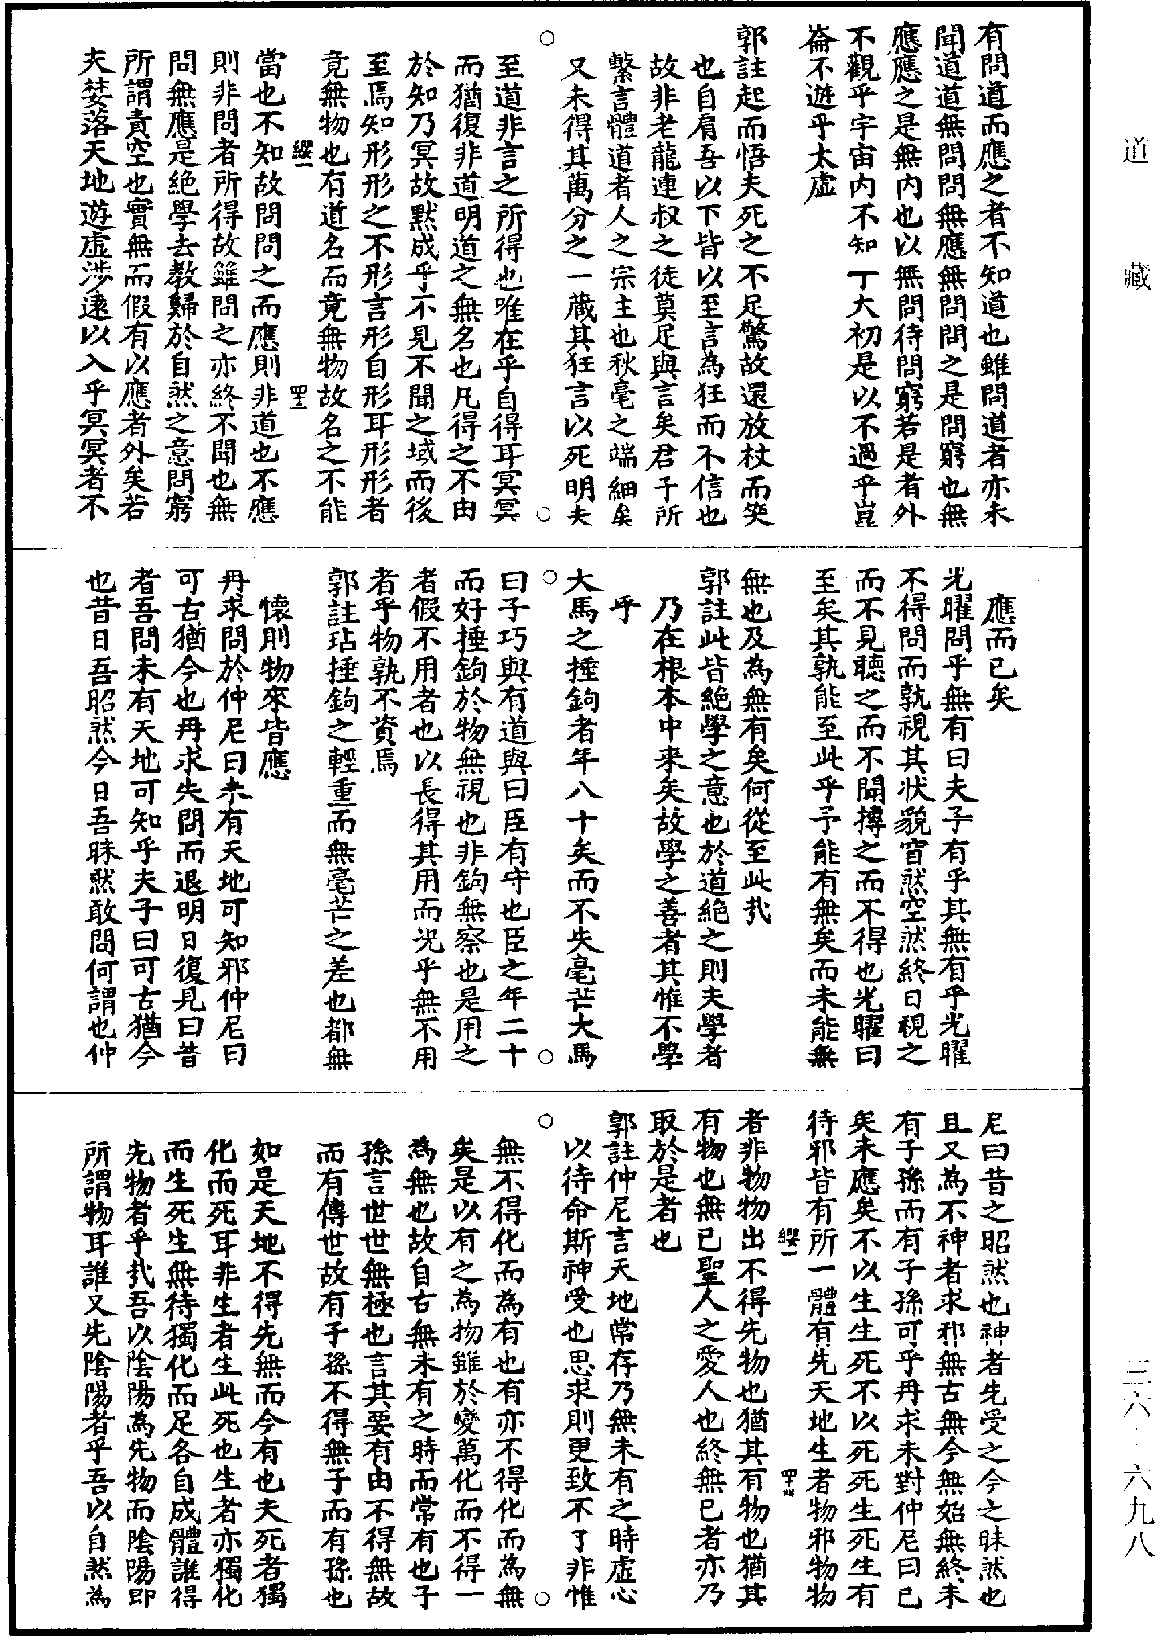 有問道而應之者不知道也雖問道者亦未
聞道道無問問無應無問問之是問窮也無
應應之是無內也以無問待問窮若是者外
不觀乎宇宙內不知丁大初是以不過乎崑
崙不遊乎太虛
郭註起而悟夫死之不足驚故還放杖而笑
也自肩吾以下皆以至言為狂而不信也
故非老龍連叔之徒莫足與言矣君子所
繫言體道者人之宗主也秋毫之端細矣
又未得其萬分之一藏其狂言以死明夫
至道非言之所得也唯在乎自得耳冥冥
而猶復非道明道之無名也凡得之不由
於知乃冥故默成乎不見不聞之域而後
至焉知形形之不形言形自形耳形形者
竟無物也有道名而竟無物故名之不能
纓一 四三
當也不知故問問之而應則非道也不應
則非問者所得故雖問之亦終不聞也無
問無應是絕學去教歸於自然之意問窮
所謂責空也實無而假有以應者外矣若
夫婪落天地遊虛涉遠以入乎冥冥者不
應而已矣
光曜問乎無有曰夫子有乎其無有乎光曜
不得問而孰視其狀貌窅然空然終日視之
而不見聽之而不聞摶之而不得也光曜曰
至矣其孰能至此乎予能有無矣而未能無
無也及為無有矣何從至此哉
郭註此皆絕學之意也於道絕之則夫學者
乃在根本中來矣故學之善者其惟不學
乎
大馬之捶鉤者年八十矣而不失毫芒大馬
曰子巧與有道與曰臣有守也臣之年二十
而好捶鉤於物無視也非鉤無察也是用之
者假不用者也以長得其用而況乎無不用
者乎物孰不資焉
郭註玷捶鉤之輕重而無毫芒之差也都無
懷則物來皆應
冉求問於仲尼曰未有天地可知邪仲尼曰
可古猶今也冉求失問而退明日復見曰昔
者吾問未有天地可知乎夫子曰可古猶今
也昔日吾昭然今日吾昧然敢問何謂也仲
尼曰昔之昭然也神者先受之今之昧然也
且又為不神者求邪無古無今無始無終未
有子孫而有子孫可乎冉求未對仲尼曰已
矣未應矣不以生生死不以死死生死生有
待邪皆有所一體有先天地生者物邪物物
纓一 四十四
者非物物出不得先物也猶其有物也猶其
有物也無已聖人之愛人也終無已者亦乃
取於是者也
郭註仲尼言天地常存乃無未有之時虛心
以待命斯神受也思求則更致不了非惟
無不得化而為有也有亦不得化而為無
矣是以有之為物雖於變萬化而不得一
為無也故自古無未有之時而常有也子
孫言世世無極也言其要有由不得無故
而有傳世故有子孫不得無子而有孫也
如是天地不得先無而今有也夫死者獨
化而死耳非生者生此死也生者亦獨化
而生死生無待獨化而足各自成體誰得
先物者乎哉吾以陰陽為先物而陰陽即
所謂物耳誰又先陰陽者乎吾以自然為
道藏
三六·六九八